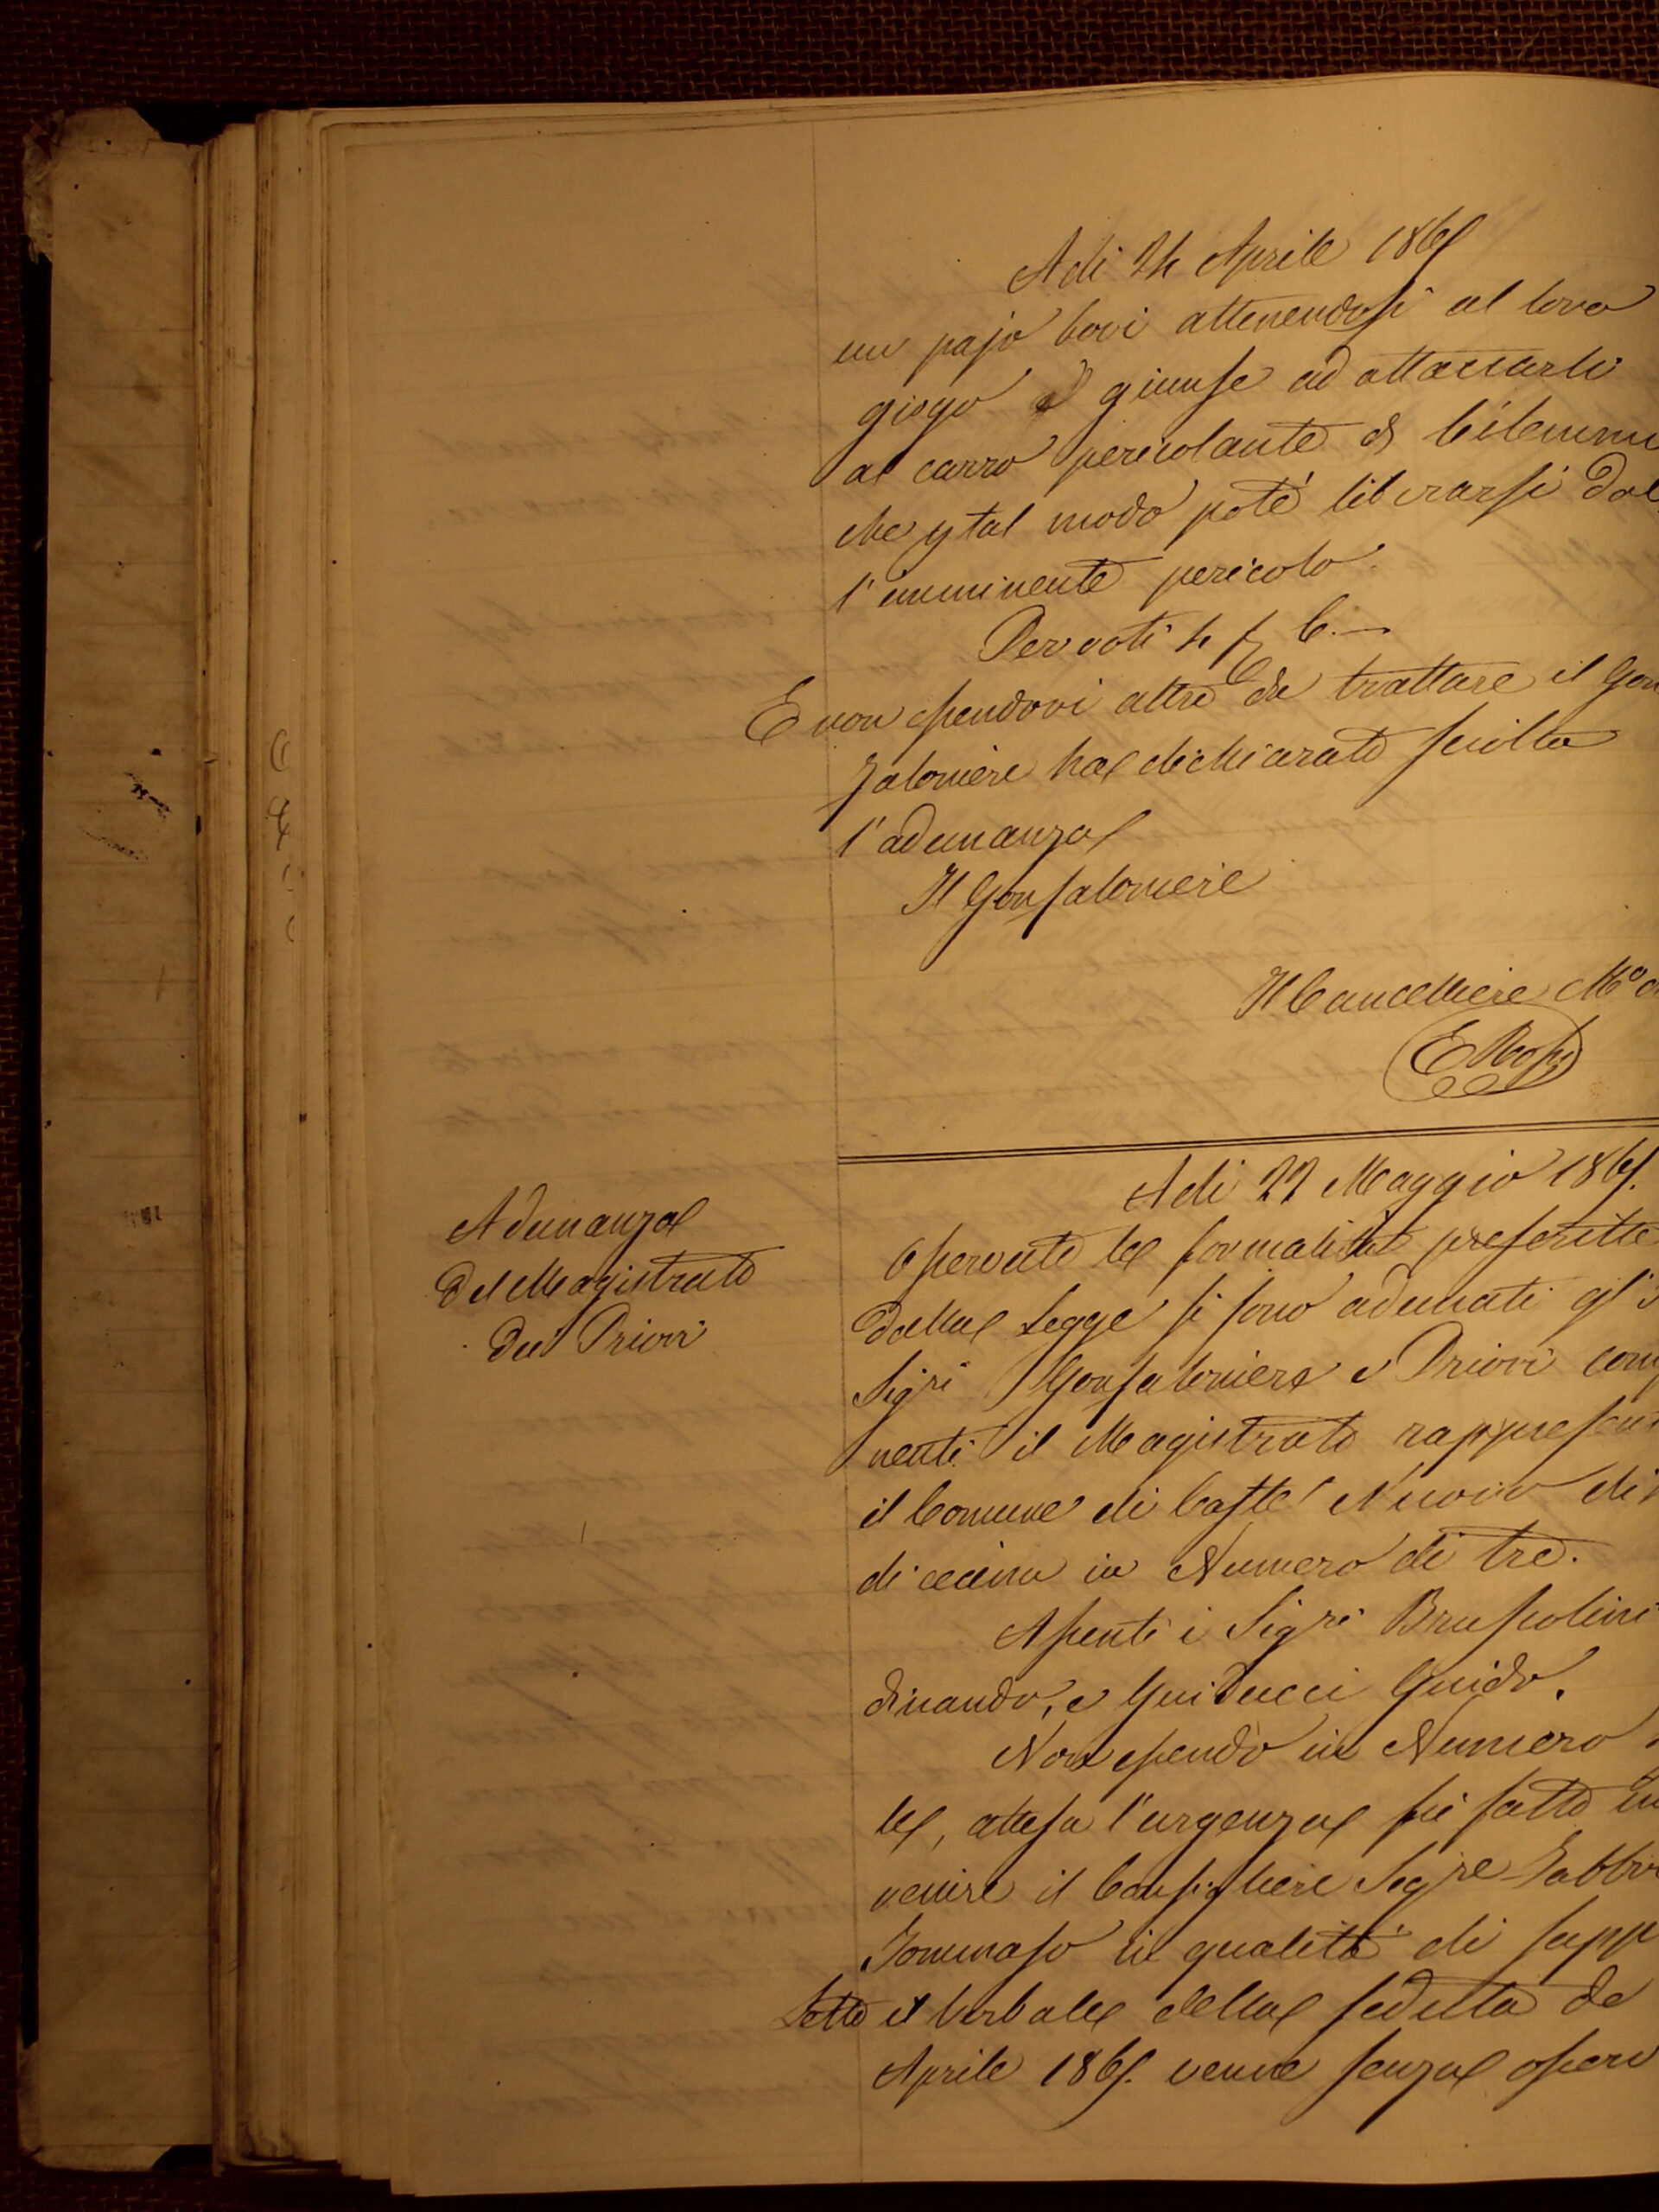 Adi 24 Aprile 1865
un pajo bovi attenendosi al loro
giogo e giunse ad attaccarli
al carro pericolante di
che p tal modo poté liberarsi dal
l'imminente pericolo.
Per voti 4 f, C.—
E non essendovi altro da trattare il Gon
faloniere ha dichiarato sciolta
l'adunanza
Il Gonfaloniere
Il Cancelliere
E Rossi
Adunanza
Del Magistrato
Dei Priori
Adi 22 Maggio 1865.
Osservate le formalità prescritte
dalla Legge si sono adunati gl'
Sigri Gonfaloniere e Priori com
nenti il Magistrato rappresen
il Comune di Castel Nuovo di
di cecina in Numero di tre.
Assenti i Sigri Bruscolini
dinando, e Guiducci Guido.
Non essendo in Numero
le, attesa l'urgenza fu fatto in
venire il Consigliere Sigre Fabbri
Tommaso in qualità di supp
Letto il Verbale della seduta de
Aprile 1865. venne senza osserv